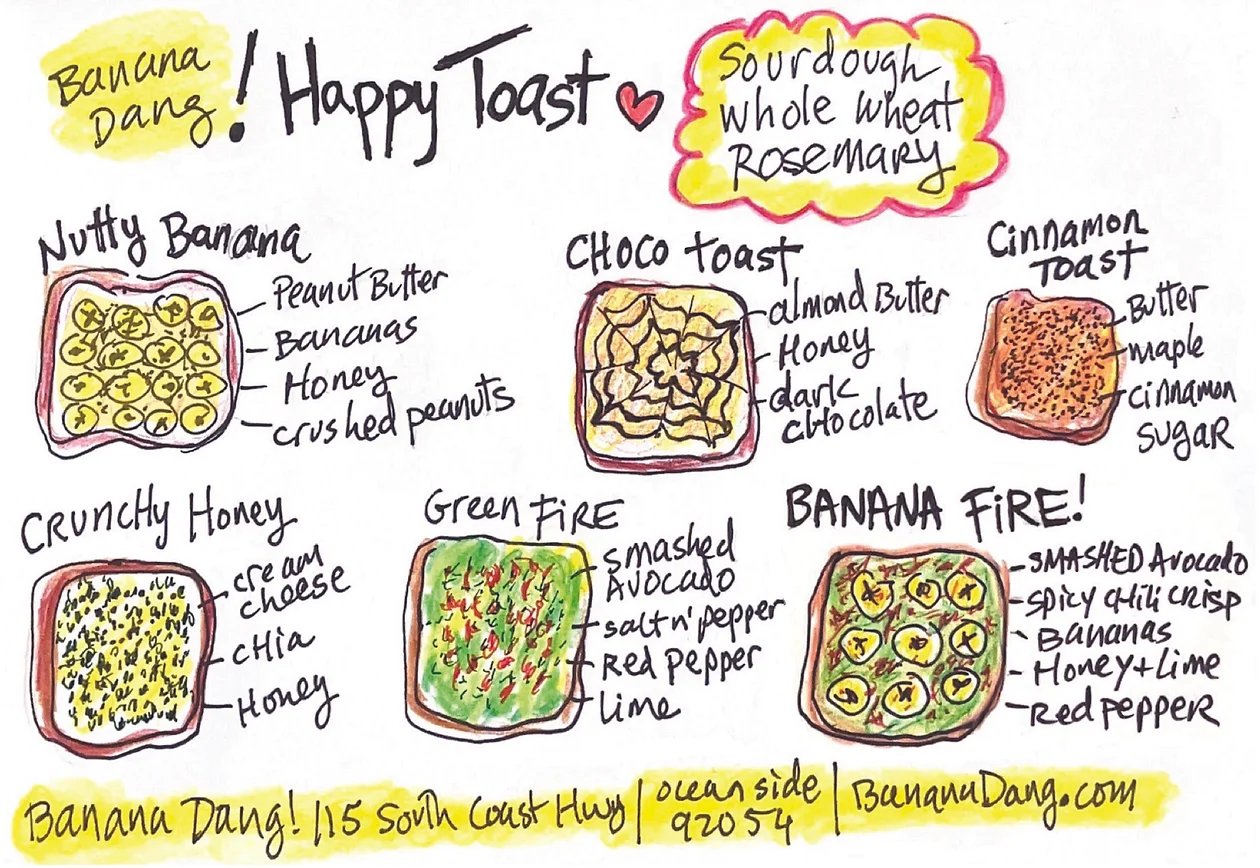 Banana
Dang!
Happy Toast
Sourdough
whole wheat
Rosemary
Nutty Banana
Peanut Butter
Bananas
Honey
crushed peanuts
CHOCO toast
almond Butter
Honey
dark
chocolate
Cinnamon
Toast
Butter
maple
cinnamon
sugar
Crunchy Honey
cream
cheese
chia
Honey
Green FiRE
smashed
Avocado
salt n' pepper
Red pepper
lime
BANANA FiRE!
SMASHED Avocado
spicy chili crisp
Bananas
Honey + Lime
Red pepper
Banana Dang! 115 South Coast Hwy
ocean side
92054
BananaDang.com